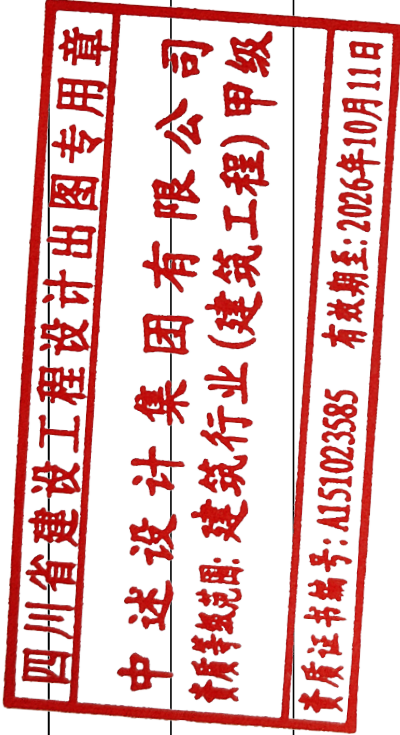 四川省建设工程设计出图专用章
中述设计集团有限公司
资质等级范围:建筑行业(建筑工程)甲级
资质证书编号:A151023585 有效期至:2026年10月11日